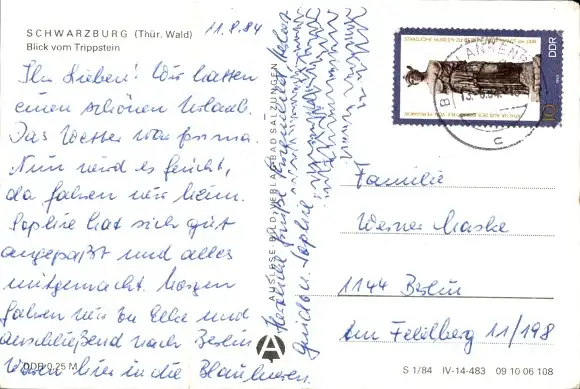 SCHWARZBURG (Thür. Wald)
Blick vom Trippstein
11.8.84
Ihr Lieben! Wir hatten
einen schönen Urlaub.
Das Wetter war prima.
Nun wird es feucht,
da fahren wir heim.
Sophie hat sich gut
angepaßt und alles
mitgemacht. Morgen
fahren wir zu Elke und
anschließend nach Berlin
Waren hier in die Blaubeeren.
Herzliche Grüße
Guido u. Sophie
DDR 0,25 M
AUSLESE-BILD-VERLAG BAD SALZUNGEN
A
STAATLICHE MUSEEN ZU BERLIN
DDR
10
BLANKENB
c
Familie
Werner Maske
1144 Berlin
Am Feldberg 11/198
S 1/84 IV-14-483 09 10 06 108